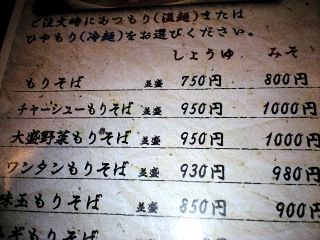 ご注文時におつもり(温麺)または
ひやもり(冷麺)をお選びください。
しょうゆ みそ
もりそば 並盛 750円 800円
チャーシューもりそば 並盛 950円 1000円
大盛野菜もりそば 並盛 950円 1000円
ワンタンもりそば 並盛 930円 980円
味玉もりそば 並盛 850円 900円
ギもりそば